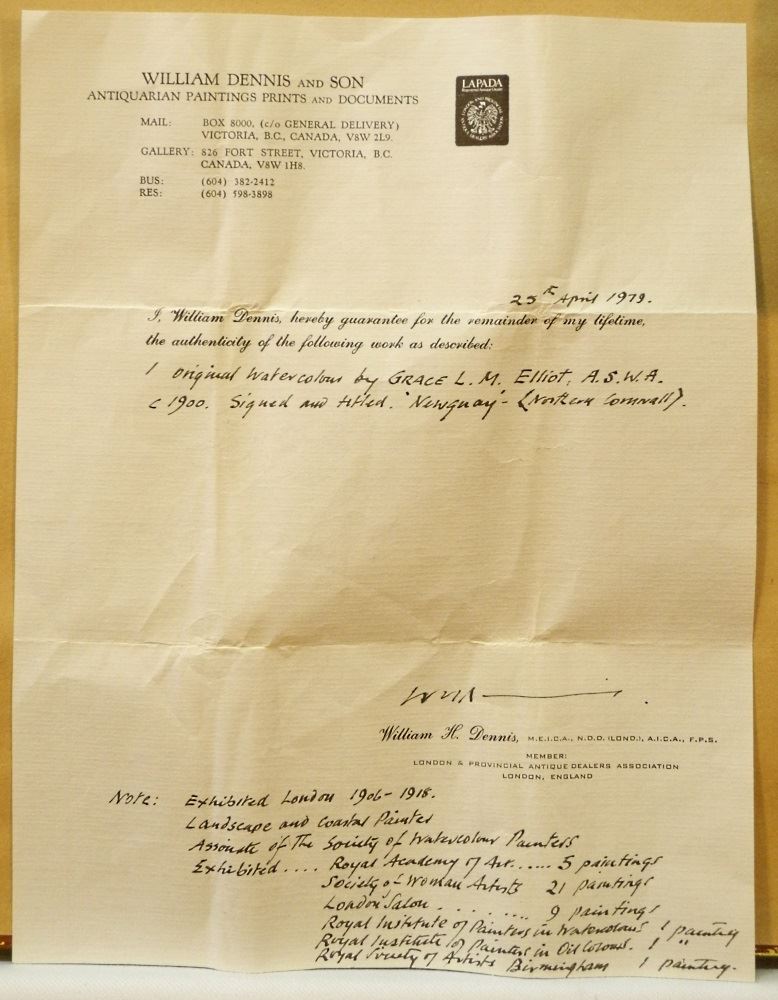 WILLIAM DENNIS AND SON
ANTIQUARIAN PAINTINGS PRINTS AND DOCUMENTS
MAIL: BOX 8000, (c/o GENERAL DELIVERY)
VICTORIA, B.C., CANADA, V8W 2L9.
GALLERY: 826 FORT STREET, VICTORIA, B.C.
CANADA, V8W 1H8.
BUS: (604) 382-2412
RES: (604) 598-3898
LAPADA
25th April 1979.
I, William Dennis, hereby guarantee for the remainder of my lifetime,
the authenticity of the following work as described:
1 original watercolour by GRACE L. M. Elliot, A.S.W.A.
c 1900. Signed and titled. 'Newquay' - (Northern Cornwall).
William H. Dennis, M.E.I.C.A., N.D.D. (LOND.), A.I.C.A., F.P.S.
MEMBER:
LONDON & PROVINCIAL ANTIQUE DEALERS ASSOCIATION
LONDON, ENGLAND
Note: Exhibited London 1906 - 1918.
Landscape and Coastal Painter
Associate of The Society of Watercolour Painters
Exhibited .... Royal Academy of Art ...... 5 paintings
Society of Woman Artists 21 paintings
London Salon ......... 9 paintings
Royal Institute of Painters in Watercolours 1 painting
Royal Institute of Painters in Oil Colours. 1 "
Royal Society of Artists Birmingham 1 painting.